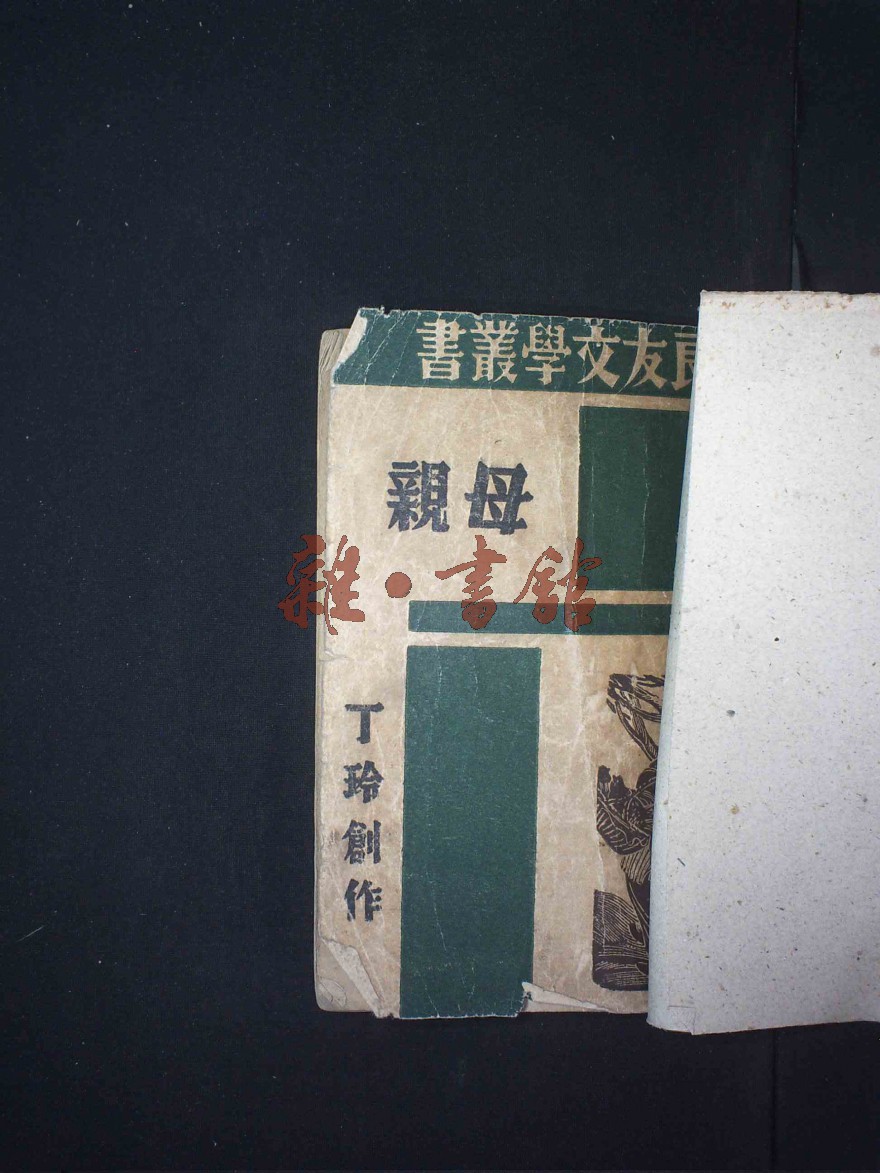 良友文學叢書
母親
雜·書館
丁玲創作